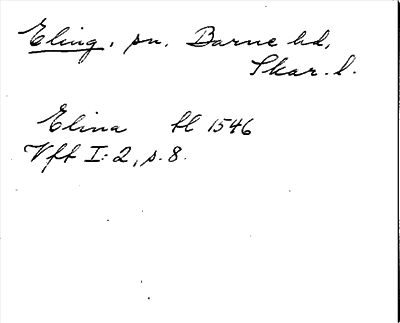 Eling, sn. Barne hd,
Skar. l.
Elina tl 1546
Vft I:2, s. 8.